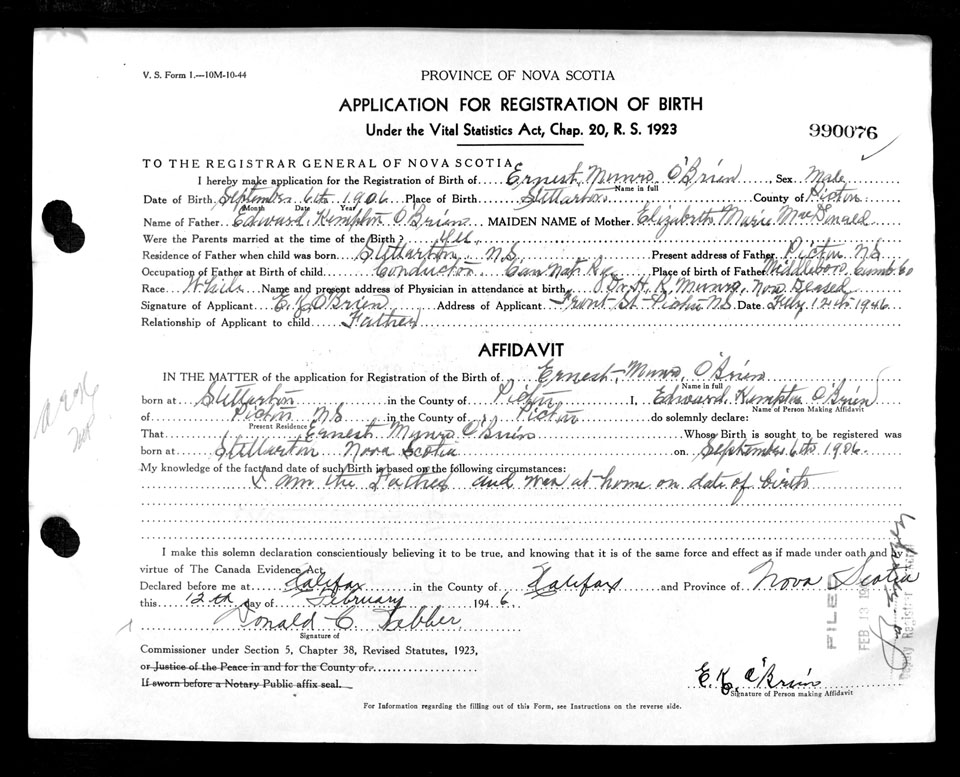 V. S. Form 1.—10M-10-44
PROVINCE OF NOVA SCOTIA
APPLICATION FOR REGISTRATION OF BIRTH
Under the Vital Statistics Act, Chap. 20, R. S. 1923
990076
TO THE REGISTRAR GENERAL OF NOVA SCOTIA
I hereby make application for the Registration of Birth of Ernest Munro O'Brien Sex Male
Name in full
Date of Birth September 6th 1906 Place of Birth Stellarton County of Pictou
Month Date Year
Name of Father Edward Kempton O'Brien MAIDEN NAME of Mother Elizabeth Marie MacDonald
Were the Parents married at the time of the Birth? Yes
Residence of Father when child was born Stellarton N.S. Present address of Father Pictou NS
Occupation of Father at Birth of child Conductor Can Nat Ry Place of birth of Father Middleboro Cumb Co
Race White Name and present address of Physician in attendance at birth Dr H. R. Munro, Now
Signature of Applicant E. K. O'Brien Address of Applicant Front St Pictou NS Date Feby 12th 1946
Relationship of Applicant to child Father
AFFIDAVIT
IN THE MATTER of the application for Registration of the Birth of Ernest Munro O'Brien
Name in full
born at Stellarton in the County of Pictou I, Edward Kempton O'Brien
Name of Person Making Affidavit
of Pictou NS in the County of Pictou do solemnly declare:
Present Residence
That Ernest Munro O'Brien Whose Birth is sought to be registered was
born at Stellarton Nova Scotia on September 6th 1906
My knowledge of the fact and date of such Birth is based on the following circumstances:
I am the Father and was at home on date of birth
I make this solemn declaration conscientiously believing it to be true, and knowing that it is of the same force and effect as if made under oath and by
virtue of The Canada Evidence Act,
Declared before me at Halifax in the County of Halifax and Province of Nova Scotia
this 12th day of February 1946
Donald C.
Signature of
Commissioner under Section 5, Chapter 38, Revised Statutes, 1923,
or Justice of the Peace in and for the County of
If sworn before a Notary Public affix seal.
E K O'Brien
Signature of Person making Affidavit
For Information regarding the filling out of this Form, see Instructions on the reverse side.
FILED
FEB 13
Deputy Registrar